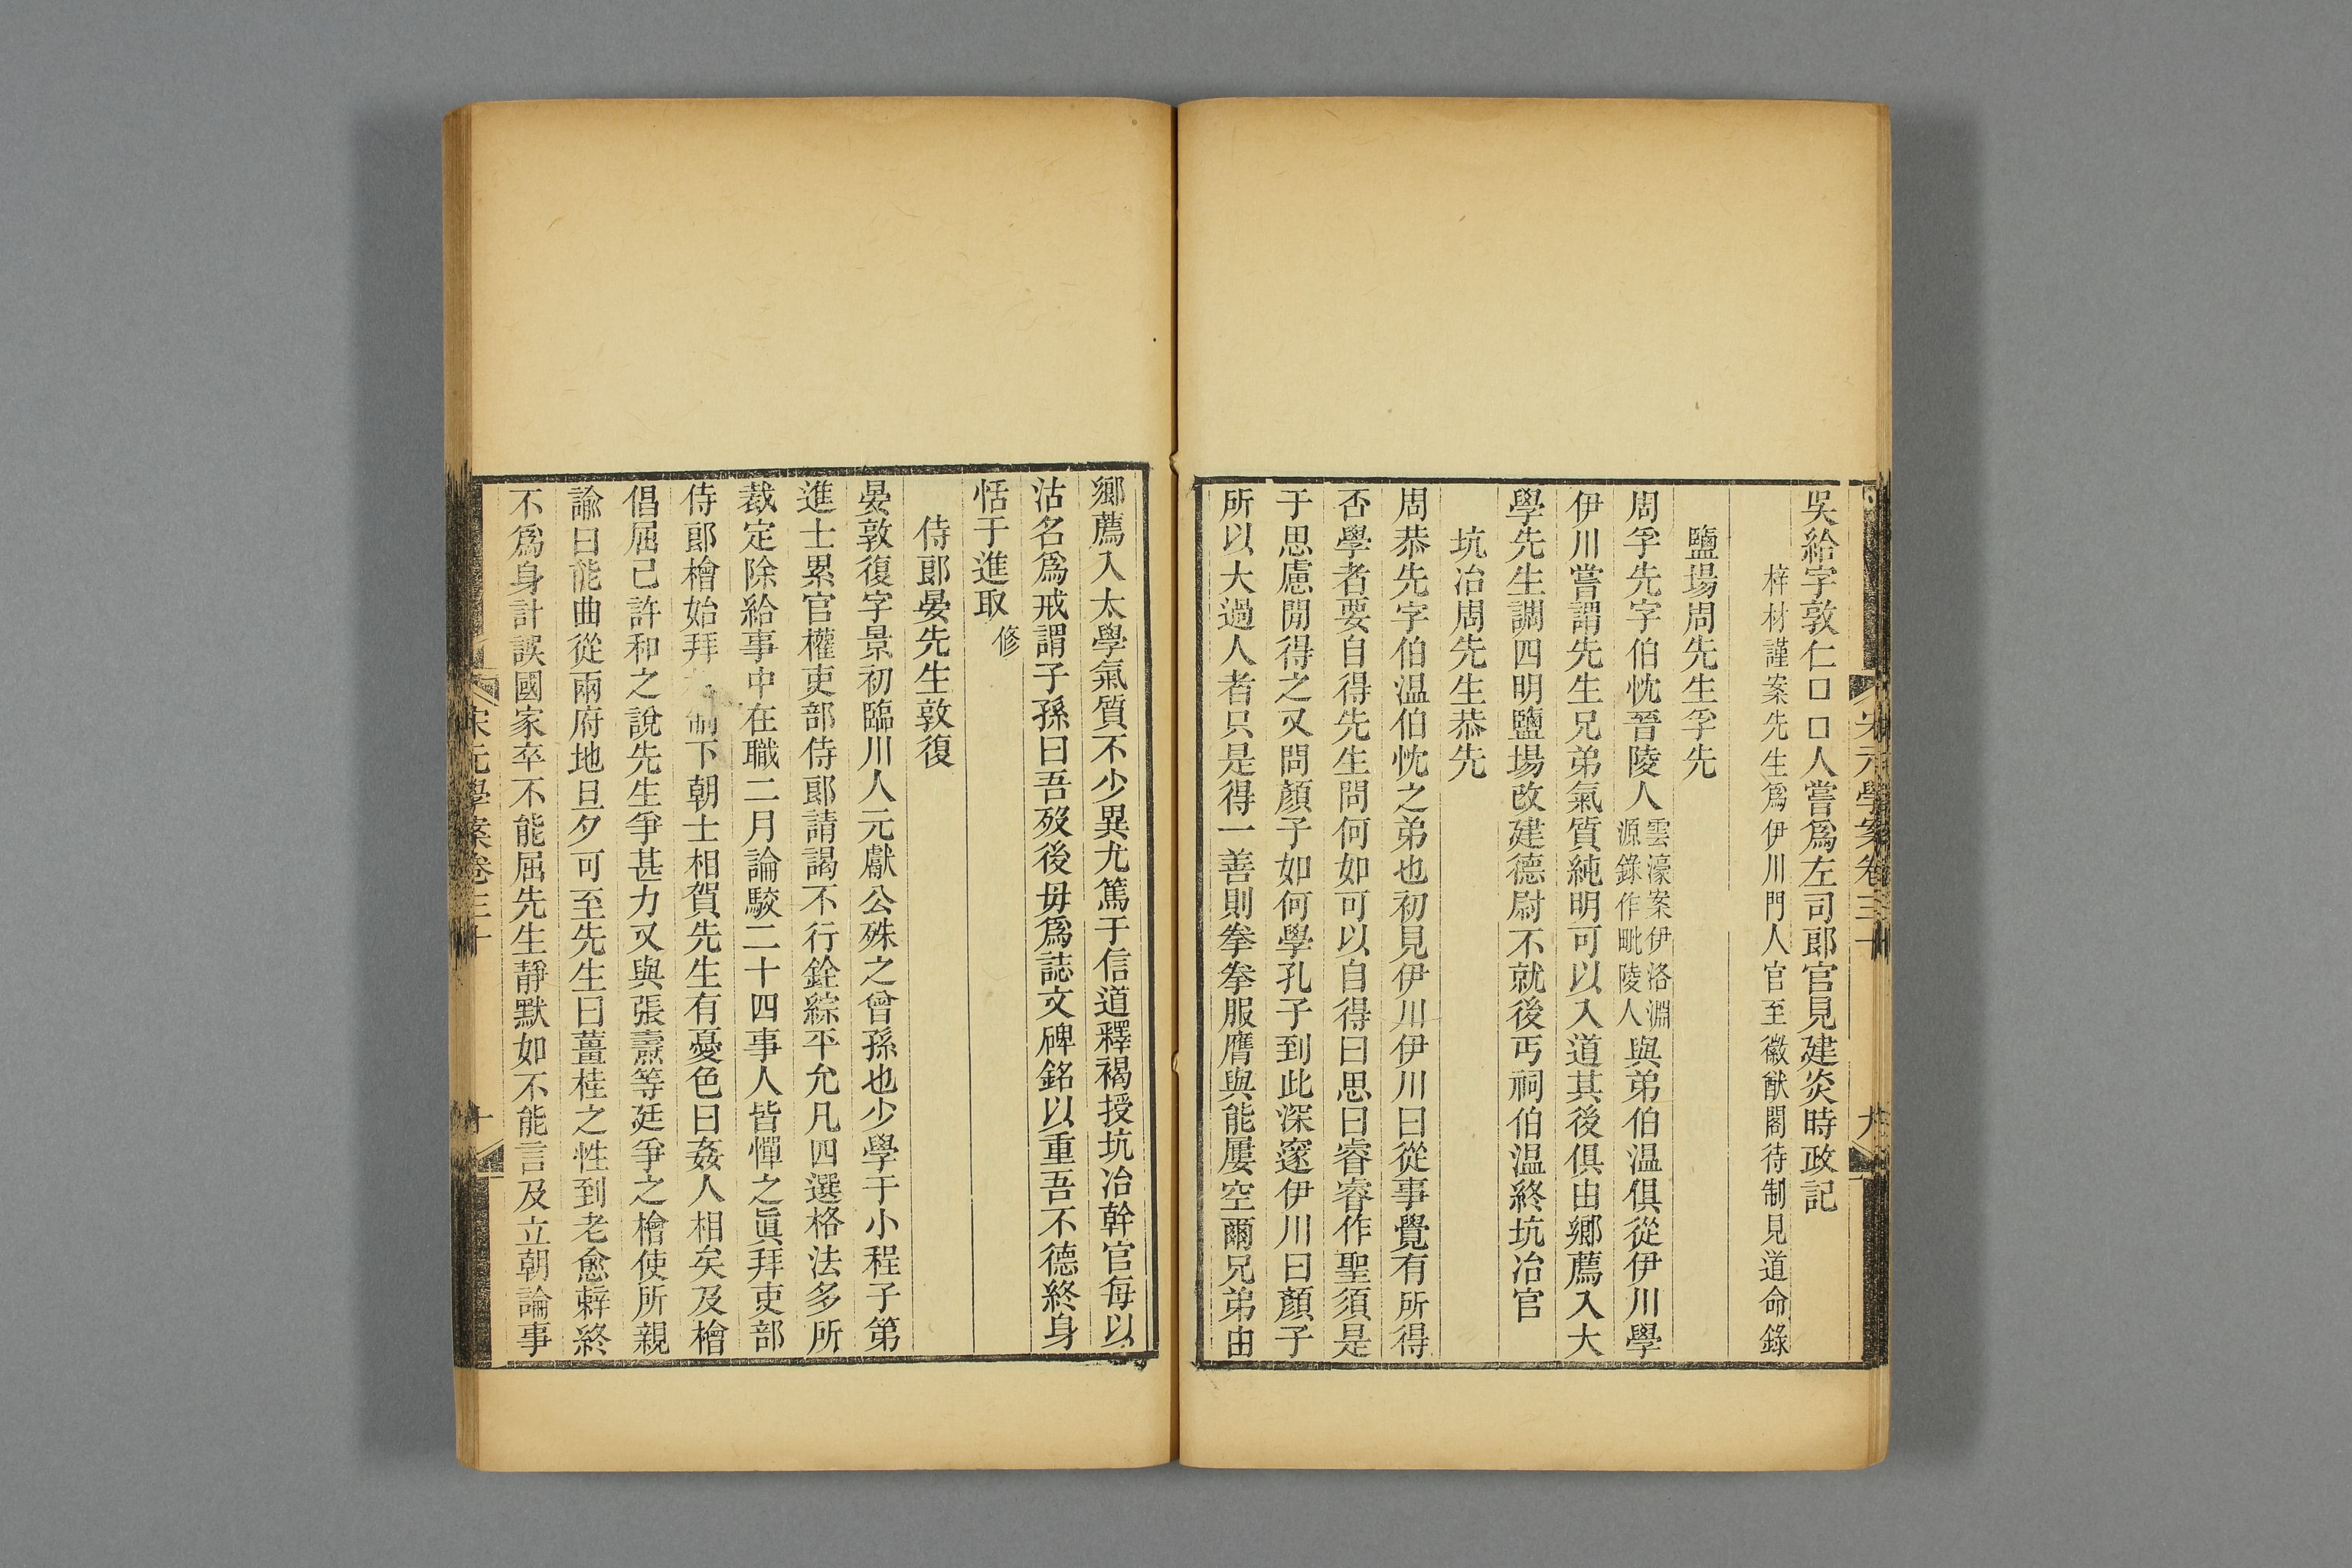 宋元學案卷三十
九
吳給字敦仁口口人嘗爲左司郞官見建炎時政記
梓材謹案先生爲伊川門人官至徽猷閣待制見道命錄
鹽場周先生孚先
周孚先字伯忱晉陵人雲濠案伊洛淵源錄作毗陵人與弟伯温俱從伊川學
伊川嘗謂先生兄弟氣質純明可以入道其後俱由鄉薦入大
學先生調四明鹽場改建德尉不就後丐祠伯温終坑冶官
坑冶周先生恭先
周恭先字伯温伯忱之弟也初見伊川伊川曰從事覺有所得
否學者要自得先生問何如可以自得曰思曰睿睿作聖須是
于思慮閒得之又問顏子如何學孔子到此深邃伊川曰顏子
所以大過人者只是得一善則拳拳服膺與能屢空爾兄弟由
鄉薦入太學氣質不少異尤篤于信道釋褐授坑冶幹官每以
沽名爲戒謂子孫曰吾歿後毋爲誌文碑銘以重吾不德終身
恬于進取修
侍郞晏先生敦復
晏敦復字景初臨川人元獻公殊之曾孫也少學于小程子第
進士累官權吏部侍郞請謁不行銓綜平允凡四選格法多所
裁定除給事中在職二月論駮二十四事人皆憚之眞拜吏部
侍郞檜始拜制下朝士相賀先生有憂色曰姦人相矣及檜
倡屈己許和之說先生爭甚力又與張燾等廷爭之檜使所親
諭曰能曲從兩府地旦夕可至先生曰薑桂之性到老愈辣終
不爲身計誤國家卒不能屈先生靜默如不能言及立朝論事
宋元學案卷三十
十